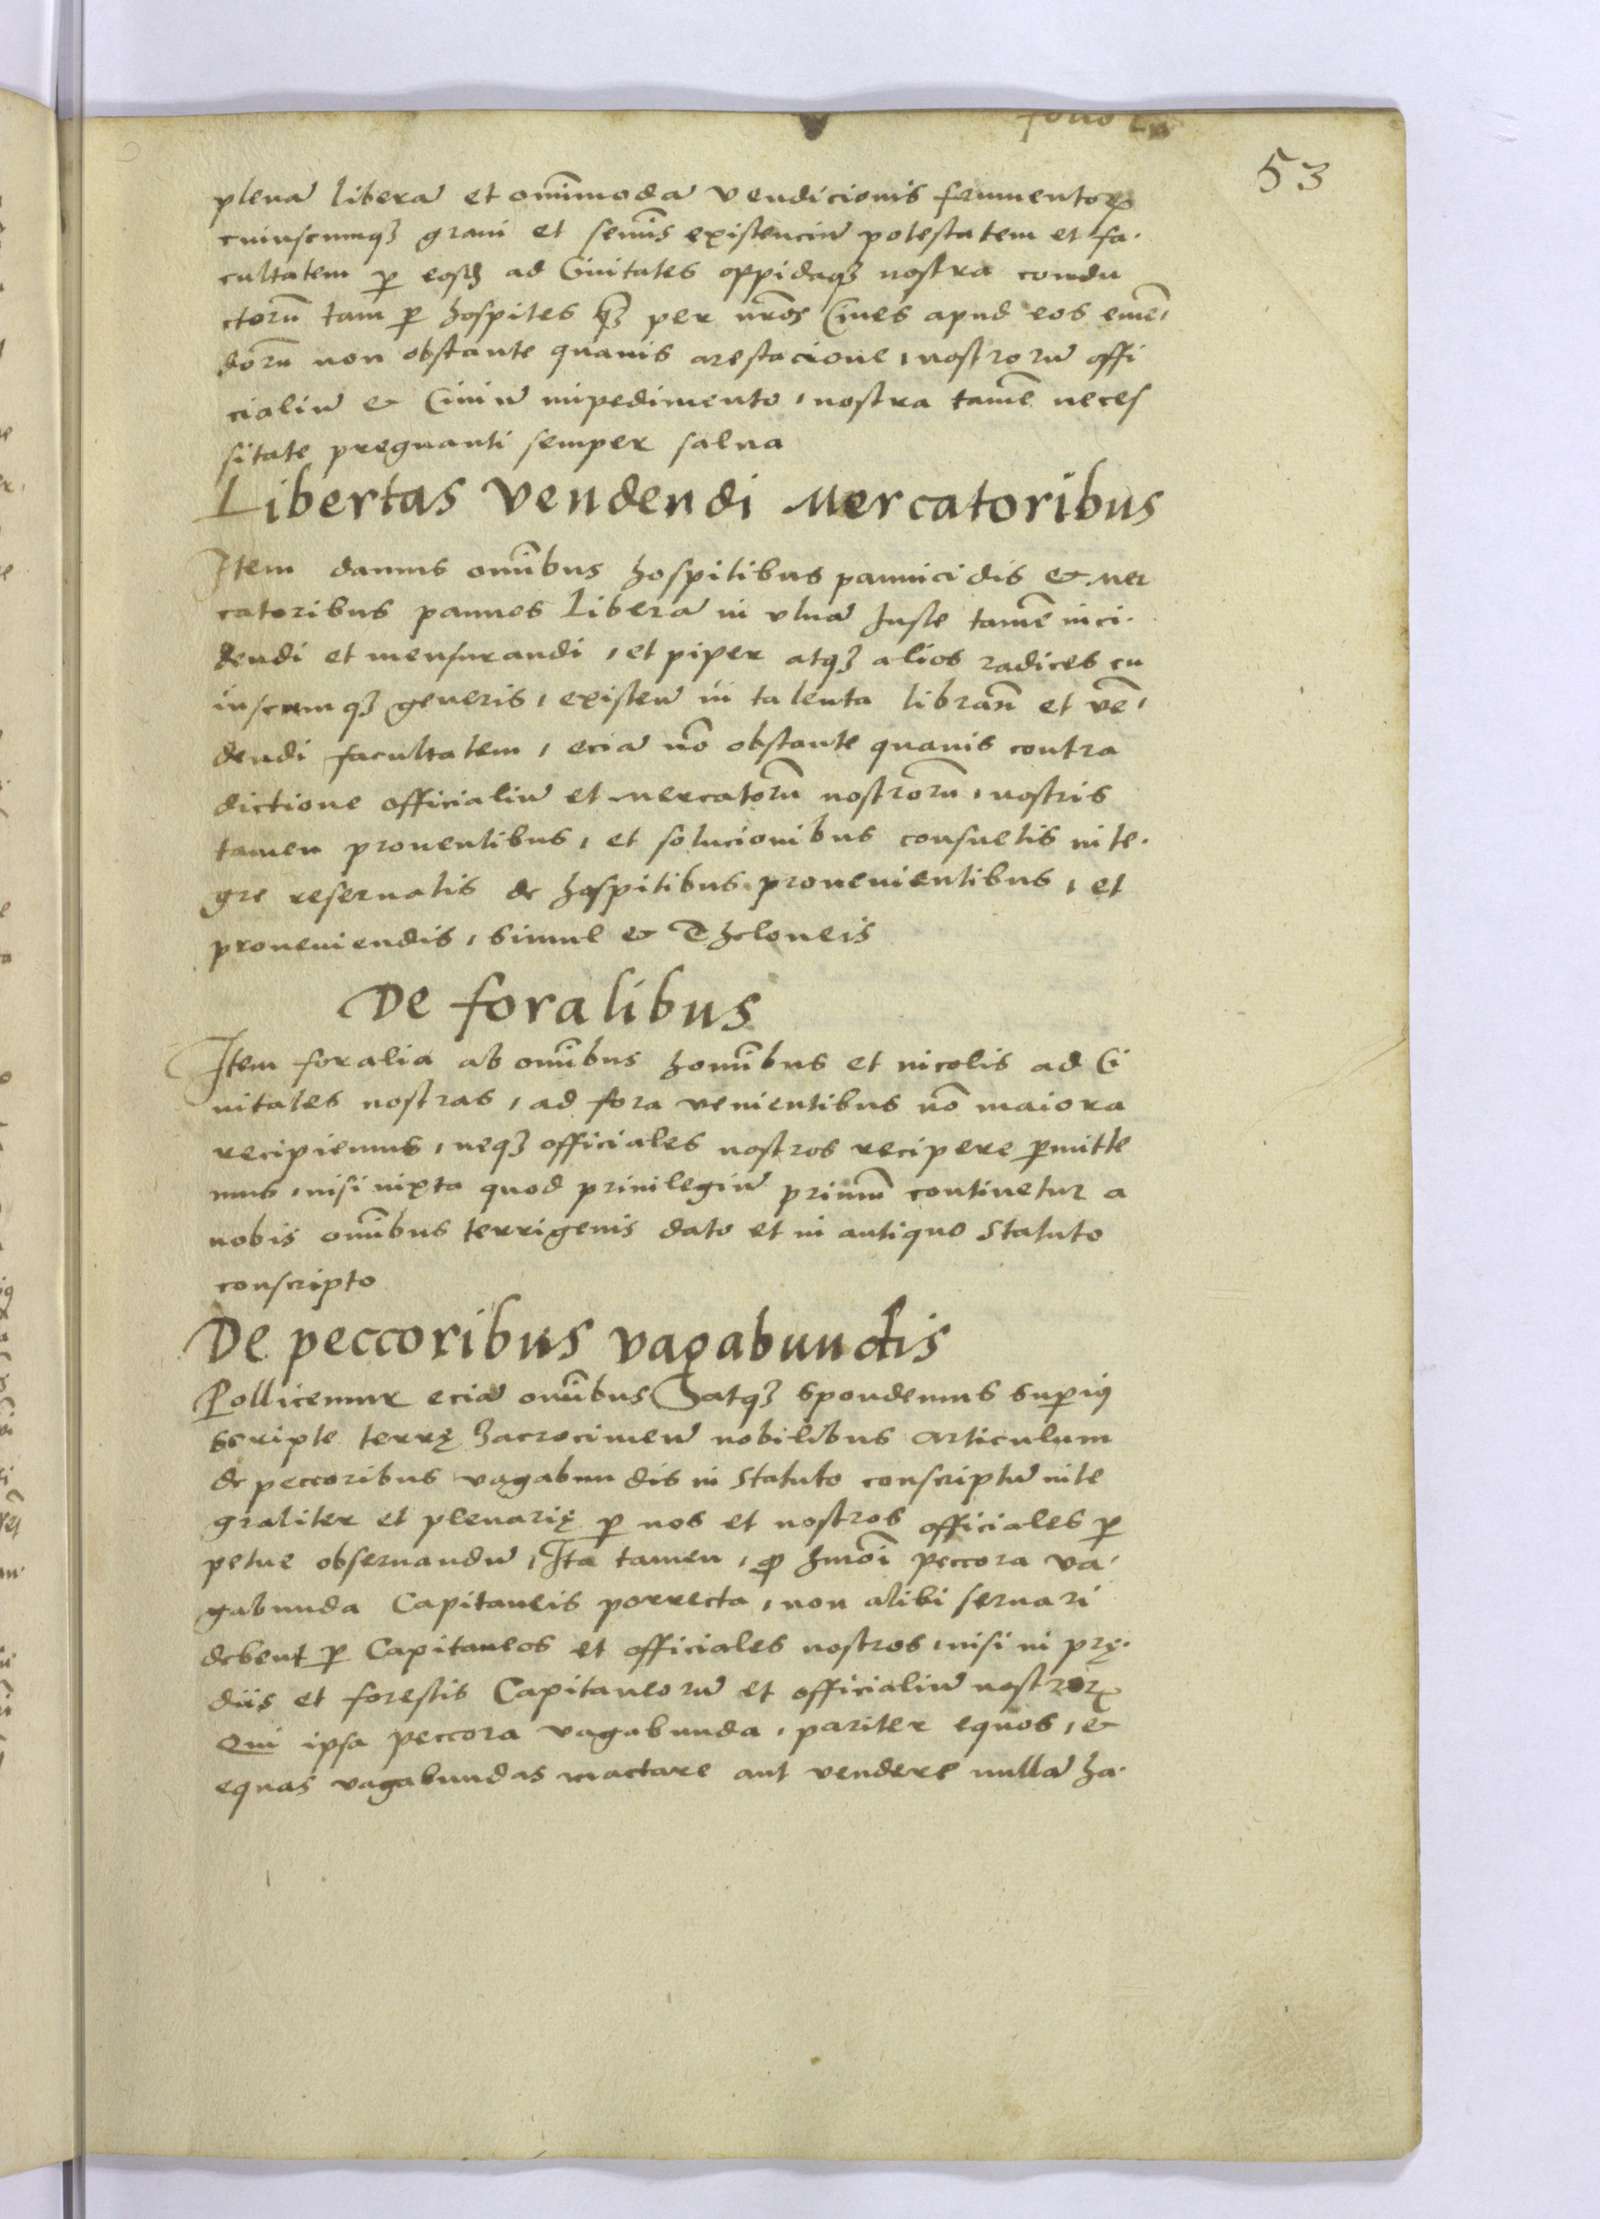 53
plenā liberā et om̄imodā vendicionis frumentoꝝ
cuiuscumqꝫ grani et sem̄is existenciū potestatem et fa-
cultatem ꝑ eosd̄ ad Ciuitates oppidaqꝫ nostra condu
ctorū tam ꝑ hospites qꝫ per nr̄os Ciues apud eos emē-
dorū non obstante quauis arestacione, nostrorū offi
cialiū & Ciuiū impedimento, nostra tamē neces
sitate pregnanti semper salua
Libertas vendendi Mercatoribus
Item damus om̄ibus hospitibus pannicidis & mer
catoribus pannos Liberā in vlnā Iuste tamē inci-
dendi et mensurandi, et piper atqꝫ alios radices cu
iuscumqꝫ generis, existen̄ in talenta libran̄ et vē-
dendi facultatem, eciā nō obstante quauis contra
dictione officialiū et mercatorū nostrorū, nostris
tamen prouentibus, et solucionibus consuetis inte-
gre reseruatis de hospitibus prouenientibus, et
proueniendis, simul & Theloneis
De foralibus
Item foralia ab om̄ibus homībus et incolis ad Ci
uitates nostras, ad fora venientibus nō maiora
recipiemus, neqꝫ officiales nostros recipere ꝑmitte
mus, nisi iuxta quod priuilegiū primū continetur a
nobis om̄ibus terrigenis dato et in antiquo Statuto
conscripto
De peccoribus vagabundis
Pollicemur eciā om̄ibus atqꝫ spondemus suꝑiꝰ
scripte terrę Zacrocimen̄ nobilibus articulum
de peccoribus vagabundis in Statuto conscriptū inte
graliter et plenarię ꝑ nos et nostros officiales ꝑ
petue obseruandū, Ita tamen, ꝙ hmōi peccora va-
gabunda Capitaneis porrecta, non alibi seruari
debent ꝑ Capitaneos et officiales nostros, nisi in prę-
diis et forestis Capitaneorū et officialiū nostroꝝ
Qui ipsa peccora vagabunda, pariter equos, &
equas vagabundas mactare aut vendere nullā ha-